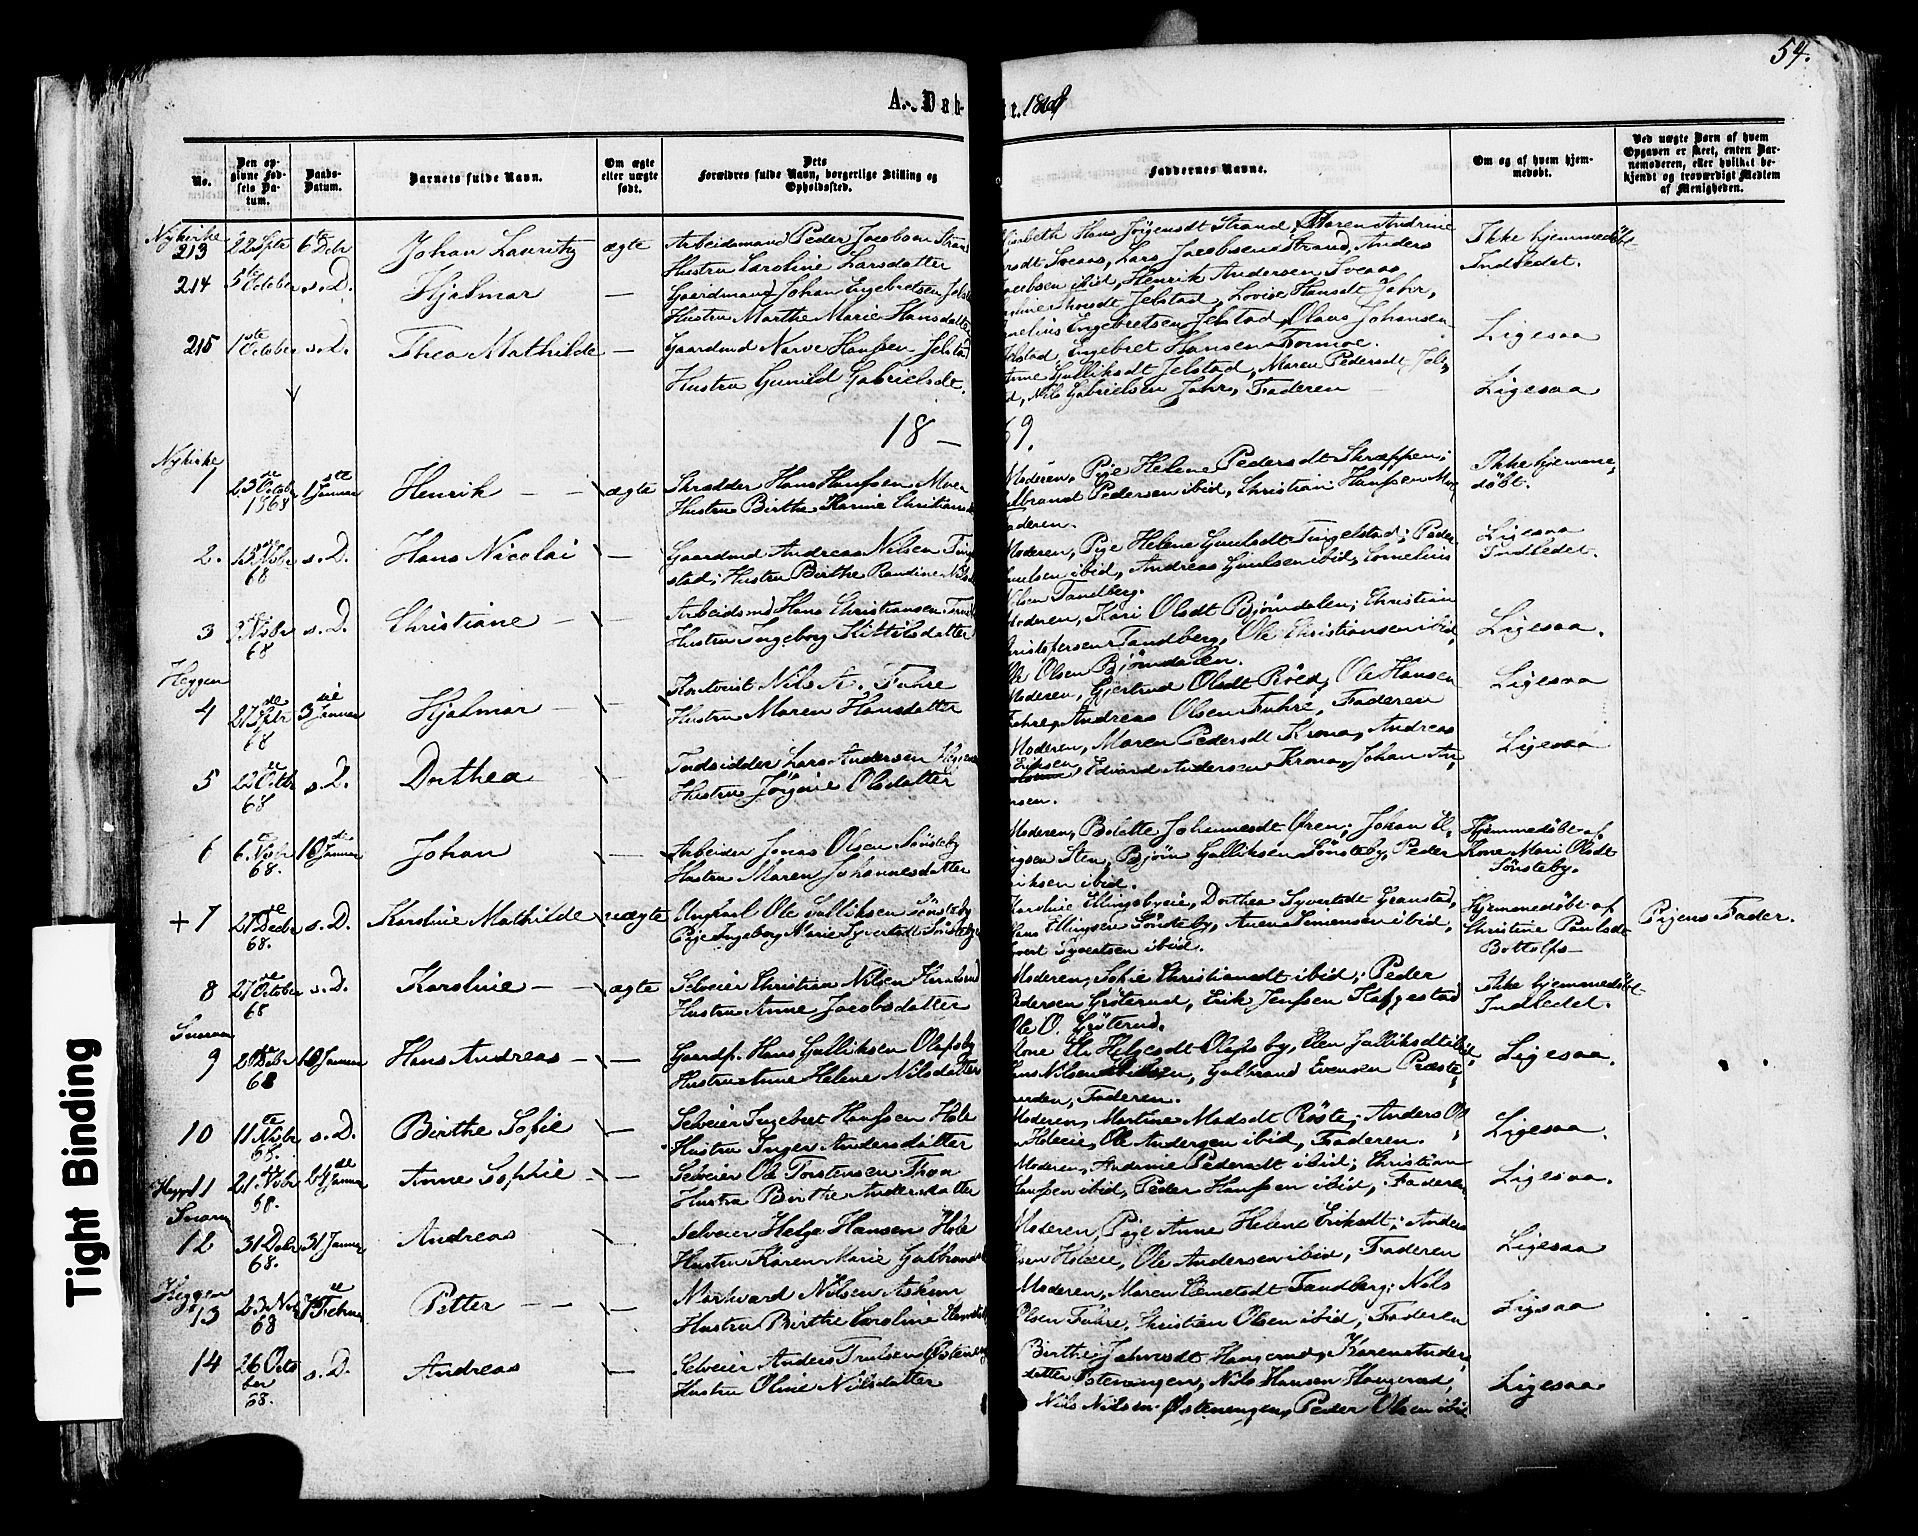 54.
A. Døb
te. 1868
No.
Den opgivne Fødsels Datum.
Daabs-Datum.
Barnets fulde Navn.
Om ægte eller uægte født.
Dets Forældres fulde Navn, borgerlige Stilling og Opholdssted.
Faddernes Navne.
Om og af hvem hjemmedøbt.
Ved uægte Børn af hvem Opgaven er skeet, enten Barnemoderen, eller hvilket bekjendt og troværdigt Medlem af Menigheden.
Nykirke
213 22 Sptr 6te Debr Johan Lauritz ægte Arbeidsmand Peder Jacobsen Strand
Hustru Caroline Larsdatter
Hans Jørgensdt Strand, Maren Andrine
Sveaas, Lars Jacobsen Strand, Anders
Jacobsen ibid, Henrik Andersen Sveaas
Ikke hjemmedøbt
Indledet.
214 5te October s.D. Hjalmar — Gaardmand Johan Engebretsen Jelstad
Hustru Marthe Marie Hansdatter
Jelstad, Lovise Hansdt Jahr,
Engebretsen Jelstad, Olaus Johansen
Jelstad, Engebret Hansen Formoe.
Ligesaa
215 1ste October s.D. Thea Mathilde — Gaardmd Narve Hanssen Jelstad
Hustru Gunild Gabrielsdt.
Anne Gulliksdt Jelstad, Maren Pedersdt Jels,
Nils Gabrielsen Jahr, Faderen
Ligesaa
18 — 69.
Nykirke
1 23de Octobr 1868 1ste Januar Henrik — ægte Skrædder Hans Hanssen Moen
Hustru Birthe Karine Christiansd
Moderen, Pige Helene Pedersdt Skræppen;
Gulbrand Pedersen ibid, Christian Hanssen Moe
Faderen.
Ikke hjemmedøbt.
2. 15de Novbr 68 s.D. Hans Nicolai — Gaardmd Andreas Nilsen Tingelstad;
Hustru Birthe Randine Nilsd
Moderen, Pige Helene Gulsdt Tingelstad; Peder
ibid, Andreas ibid, Cornelius
Nilsen Tandberg.
Ligesaa
Indledet.
3 Novbr 68 s.D. Christiane — Arbeidsmd Hans Christiansen
Hustru Ingeborg Kittilsdatter
Moderen, Kari Olsdt Bjørndalen; Christian
Christofersen Tandberg, Ole Christiansen ibid,
Ole Olsen Bjørndalen.
Ligesaa.
Heggen
4 21de Sptbr 68 3die Januar Hjalmar — Nils A. Fuhre
Hustru Maren Hansdatter
Moderen, Gjertrud Olsdt Røed, Ole Hansen
Fuhre, Andreas Olsen Fuhre, Faderen
Ligesaa
5 22de Octbr 68 s.D. Dorthea — Indsidder Lars Andersen
Hustru Jørgine Olsdatter
Moderen, Maren Pedersdt Krona, Andreas
Eriksen, Edvard Andersen Krona, Johan An,
ersen.
Ligesaa
6 6te Novbr 68. 10de Januar Johan — Arbeider Jonas Olsen Sønsteby
Hustru Maren Johannesdatter
Moderen, Bolette Johannesdt Øren; Johan El
Sten, Bjørn Gulliksen Sønsteby, Peder
Eriksen ibid.
Hjemmedøbt af
Kone Mari Olsdt
Sønsteby.
+ 7 27de Decbr 68. s.D. Karoline Mathilde uægte Ungkarl Ole Gulliksen Sønsteby
Pige Ingeborg Marie Syvertsdt Sønsteby
Karoline Ellingsbyeie, Dorthea Syvertsdt Granstad,
Hans Ellingsen Sønsteby, Aren Simensen ibid,
Syvert Syvertsen ibid.
Hjemmedøbt af
Christine Paulsdt
Bottolfs—
Pigens Fader.
8 27de October 68 s.D. Karoline — ægte Selveier Christian Nilsen
Hustru Anne Jacobsdatter
Moderen, Sofie Christiansdt ibid; Peder
Pedersen Gusterud, Erik Jenssen Kopgestad
Ole O. Gusterud.
Ikke hjemmedøbt
Indledet.
Snarum
9 20de Debr 68 10 Januar Hans Andreas — Gaardf. Hans Gulliksen Olafsby
Hustru Anne Helene Nilsdatter
Kone Eli Helgesdt Olafsby, Elen Gulliksdt ibid,
Hans Nilsen, Gulbrand Evensen Præste,
gaarden, Faderen.
Ligesaa.
10 11te Novbr 68. s.D. Birthe Sofie — Selveier Ingebret Hanssen Hole
Hustru Inger Andersdatter
Moderen, Martine Madsdt Røste; Anders Ol,
Holeeie, Ole Andersen ibid, Faderen.
Ligesaa.
Heggen 11 21de Novbr 68. 24de Januar Anne Sophie — Selveier Ole Torstensen Thon
Hustru Birthe Andersdatter
Moderen, Andrine Pedersdt ibid; Christian
Hanssen ibid, Peder Hanssen ibid, Faderen
Ligesaa.
Snarum
12 31 Debr 68. 31 Januar Andreas — Selveier Helge Hansen Hole
Hustru Karen Marie Gulbrandsd
Moderen, Pige Anne Helene Eriksdt; Anders
Olsen Holeeie, Ole Andersen ibid, Faderen
Ligesaa
Heggen
13 23 Nov 68 7de Februar Petter — Markvard Nilsen Askim
Hustru Birthe Caroline
Moderen, Maren Tandberg; Nils
Olsen Fuhre, Christian Olsen ibid, Faderen
Ligesaa
14 26 October 68. s.D. Andreas — Selveier Anders Trulsen Østeneng
Hustru Oline Nilsdatter
Birthe Haugerud, Karen Anders,
datter Østenengen, Nils Hansen Haugerud,
Nils Nilsen Østenengen, Peder Olsen ibid
Ligesaa
Tight Binding